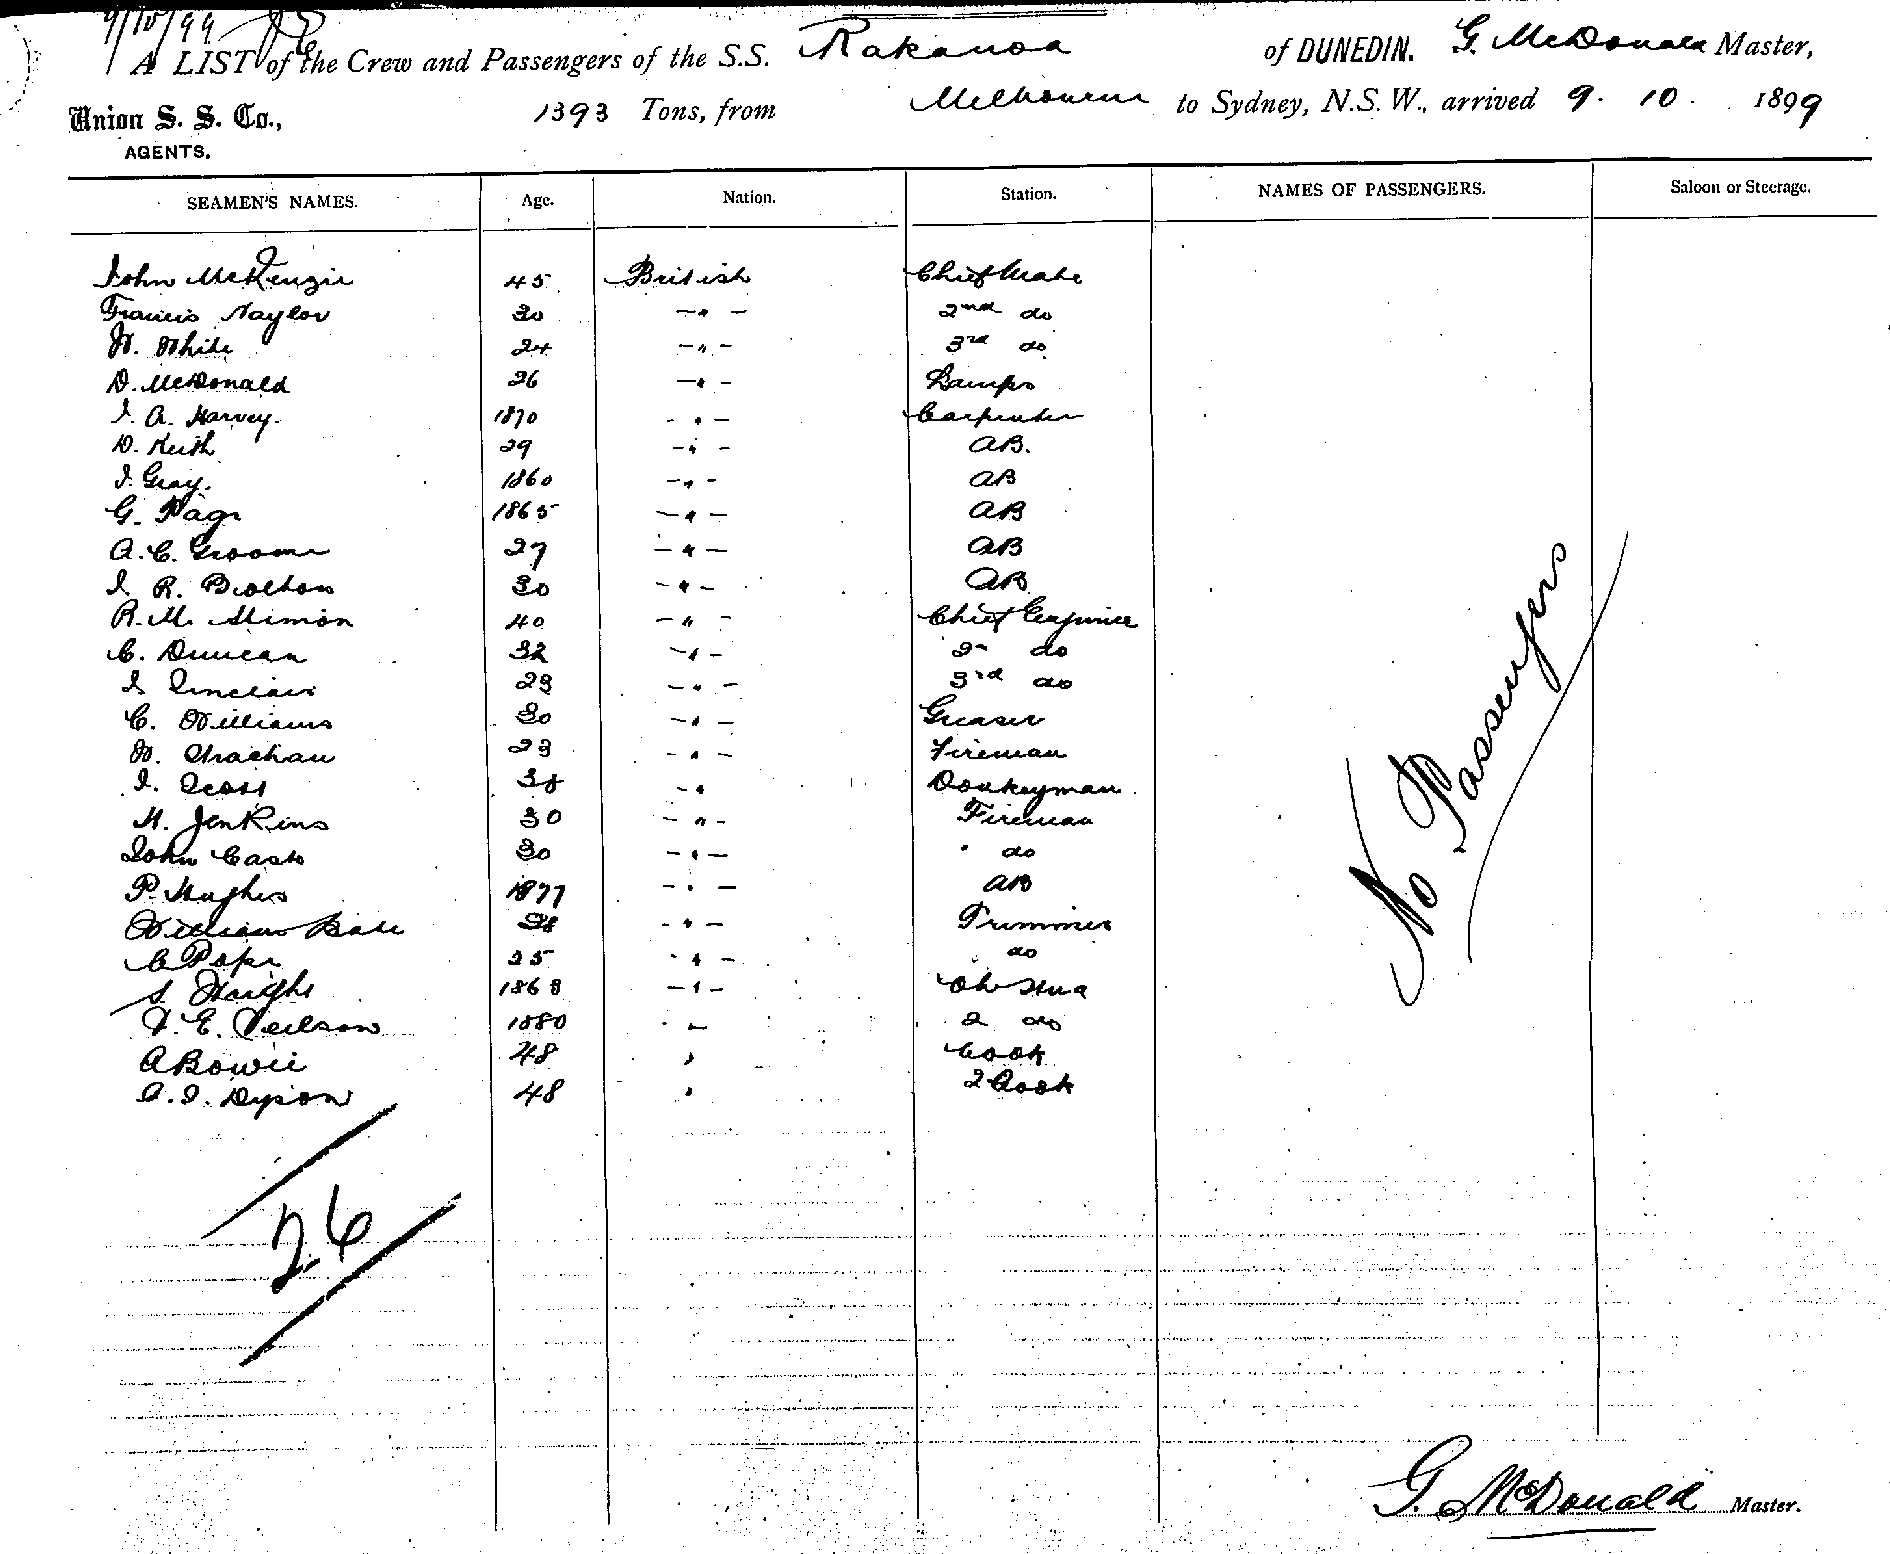 9/10/99
A LIST of the Crew and Passengers of the S.S. Rakanoa of DUNEDIN. G. McDonald Master,
Union S. S. Co., 1393 Tons, from Melbourne to Sydney, N.S.W., arrived 9. 10. 1899
AGENTS.
SEAMEN'S NAMES. Age. Nation. Station. NAMES OF PASSENGERS. Saloon or Steerage.
John McKenzie 45 British Chief Mate
Francis Naylor 30 -"- 2nd do
W. White 24 -"- 3rd do
D. McDonald 26 -"- Lamps
J. A. Harvey. 1870 -"- Carpenter
D. Keith 29 -"- AB.
J. Gray. 1860 -"- AB
G. Page 1865 -"- AB
A. C. Groome 27 -"- AB
J. R. Bolton 30 -"- AB
R. M. 40 -"- Chief Engineer
C. Duncan 32 -"- 2n do
J Sinclair 23 -"- 3rd do
C. Williams 30 -"- Greaser
W. Strachan 23 -"- Fireman
J. Scott -" Donkeyman
H. Jenkins 30 -"- Fireman
John Cash 30 -"- do
P. Hughes 1877 -"- AB
William Ball -"- Trimmer
C Pope 25 "- do
S. 1868 -"- Ch Stua
E. Neilson 1880 " 2 do
A Bowie 48 " Cook
A. J. Dyson 48 " 2 Cook
No Passengers
26
G. McDonald Master.